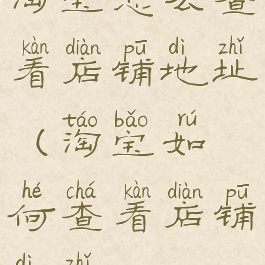 淘宝怎么查
kàn diàn pū dì zhǐ
看店铺地址
táo bǎo rú
（淘宝如
hé chá kàn diàn pū
何查看店铺
dì zhǐ